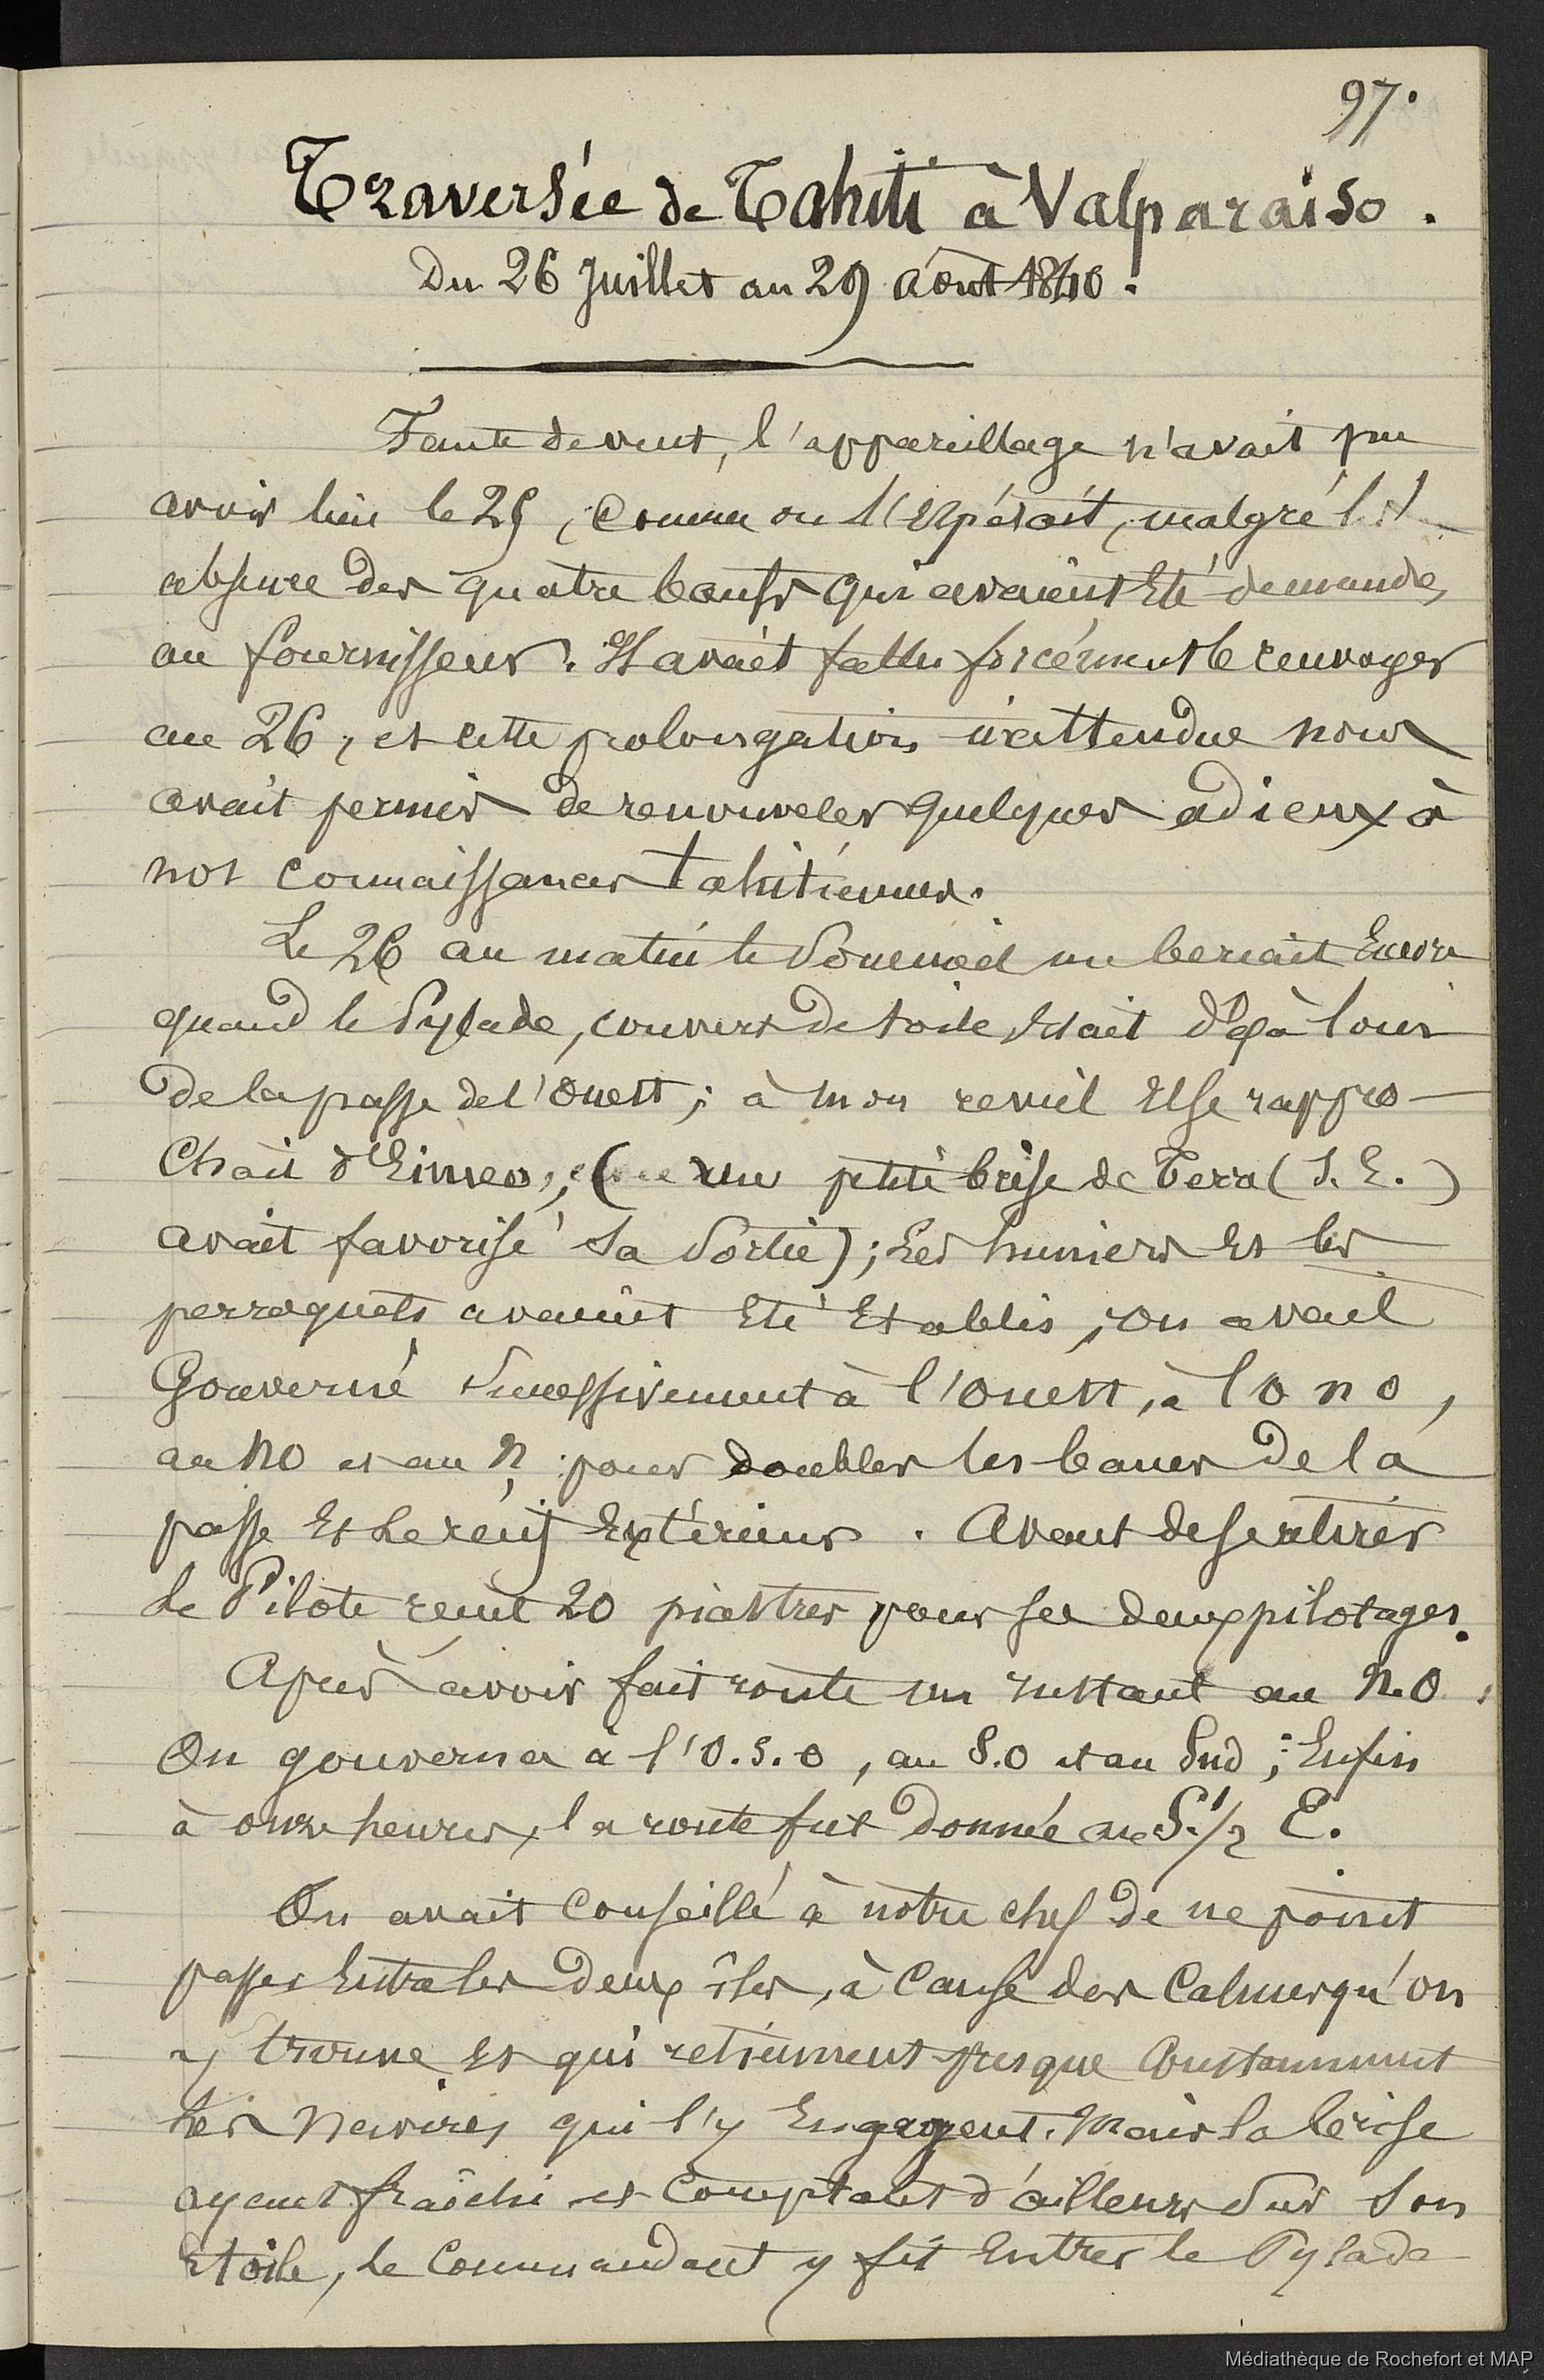 97.
Traversée de Tahiti à Valparaiso.
Du 26 Juillet au 29 août 1840.
Faute de vent, l'appareillage n'avait pu
avoir lieu le 25, comme on l'espérait, malgré l'
absence des quatre bœufs qui avaient été demandés
au fournisseur. Il avait fallu forcément le renvoyer
au 26, et cette prolongation inattendue nous
avait permis de renouveler quelques adieux à
nos connaissances tahitiennes.
Le 26 au matin le sommeil me berçait encore
quand le Pylade, couvert de toile était déjà loin
de la passe de l'Ouest; à mon reveil il se rappro-
chait d'Eimeo; (une petite brise de terre (S. E.)
avait favorisé sa sortie); les huniers et les
perroquets avaient été établis, on avait
gouverné successivement à l'Ouest, à l O n O,
au NO et au N pour doubler les bancs de la
passe et le récif extérieur. Avant de se retirer
le Pilote reçut 20 piastres pour ses deux pilotages.
Après avoir fait route un instant au N.O,
On gouverna à l'O.S.O, au S.O et au Sud; Enfin
à onze heures, la route fut donnée au S.1/2 E.
On avait conseillé à notre chef de ne point
passer entre les deux îles, à cause des calmes qu'on
y trouve et qui retiennent presque constamment
les navires qui s'y engagent. Mais la brise
ayant fraîchi et comptant d'ailleurs sur son
étoile, le Commandant y fit entrer le Pylade
Médiathèque de Rochefort et MAP